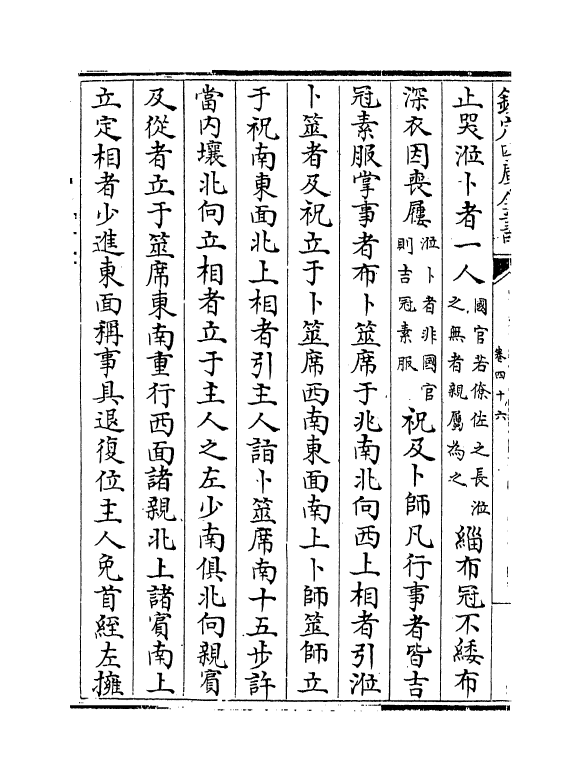 欽定四庫全書
卷四十六
止哭涖卜者一人國官若條佐之長涖之無者親屬為之緇布冠不緌布
深衣因喪屨涖卜者非國官則吉冠素服祝及卜師凡行事者皆吉
冠素服掌事者布卜筮席于兆南北向西上相者引涖
卜筮者及祝立于卜筮席西南東面南上卜師筮師立
于祝南東面北上相者引主人詣卜筮席南十五步許
當内壤北向立相者立于主人之左少南俱北向親賓
及從者立于筮席東南重行西面諸親北上諸賓南上
立定相者少進東面稱事具退復位主人免首絰左擁